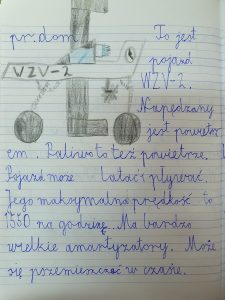 pr. dom
To jest
pojazd
VZV-2
WZV-2.
Napędzany
jest powietrz
em. Paliwo to też powietrze.
Pojazd może latać i pływać.
Jego maksymalna prędkość to
1550 na godzinę. Ma bardzo
wielkie amortyzatory. Może
się przemieszczać w czasie.